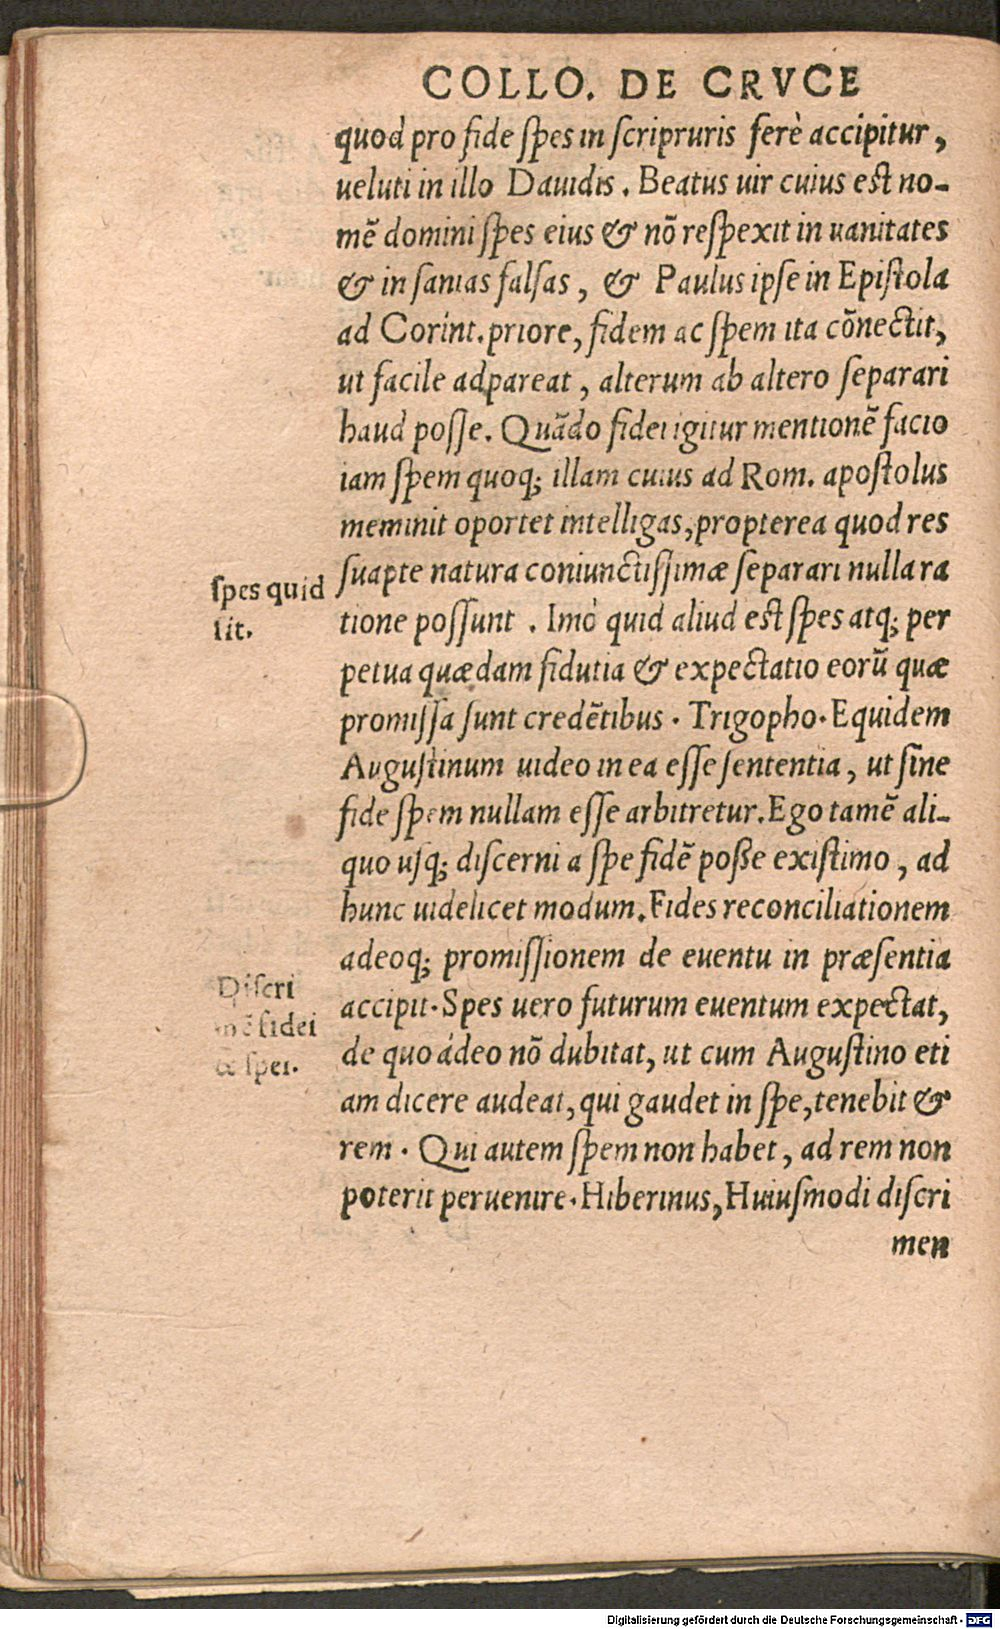 COLLO. DE CRVCE
quod pro fide spes in scripruris ferè accipitur,
ueluti in illo Dauidis. Beatus uir cuius est no-
mẽ domini spes eius & nõ respexit in uanitates
& in sanias falsas, & Paulus ipse in Epistola
ad Corint. priore, fidem ac spem ita cõnectit,
ut facile adpareat, alterum ab altero separari
haud posse. Quãdo fidei igitur mentionẽ facio
iam spem quoq; illam cuius ad Rom. apostolus
meminit oportet intelligas, propterea quod res
suapte natura coniunctissimæ separari nulla ra
tione possunt. Imò quid aliud est spes atq; per
petua quædam fidutia & expectatio eorũ quæ
promissa sunt credẽtibus. Trigopho. Equidem
Augustinum uideo in ea esse sententia, ut sine
fide spem nullam esse arbitretur. Ego tamẽ ali-
quo usq; discerni a spe fidẽ poße existimo, ad
hunc uidelicet modum. Fides reconciliationem
adeoq; promissionem de euentu in præsentia
accipit. Spes uero futurum euentum expectat,
de quo ádeo nõ dubitat, ut cum Augustino eti
am dicere audeat, qui gaudet in spe, tenebit &
rem. Qui autem spem non habet, ad rem non
poterit peruenire. Hiberinus, Huiusmodi discri
men
spes quid
sit.
Discri
mẽ fidei
& spei.
Digitalisierung gefördert durch die Deutsche Forschungsgemeinschaft - DFG